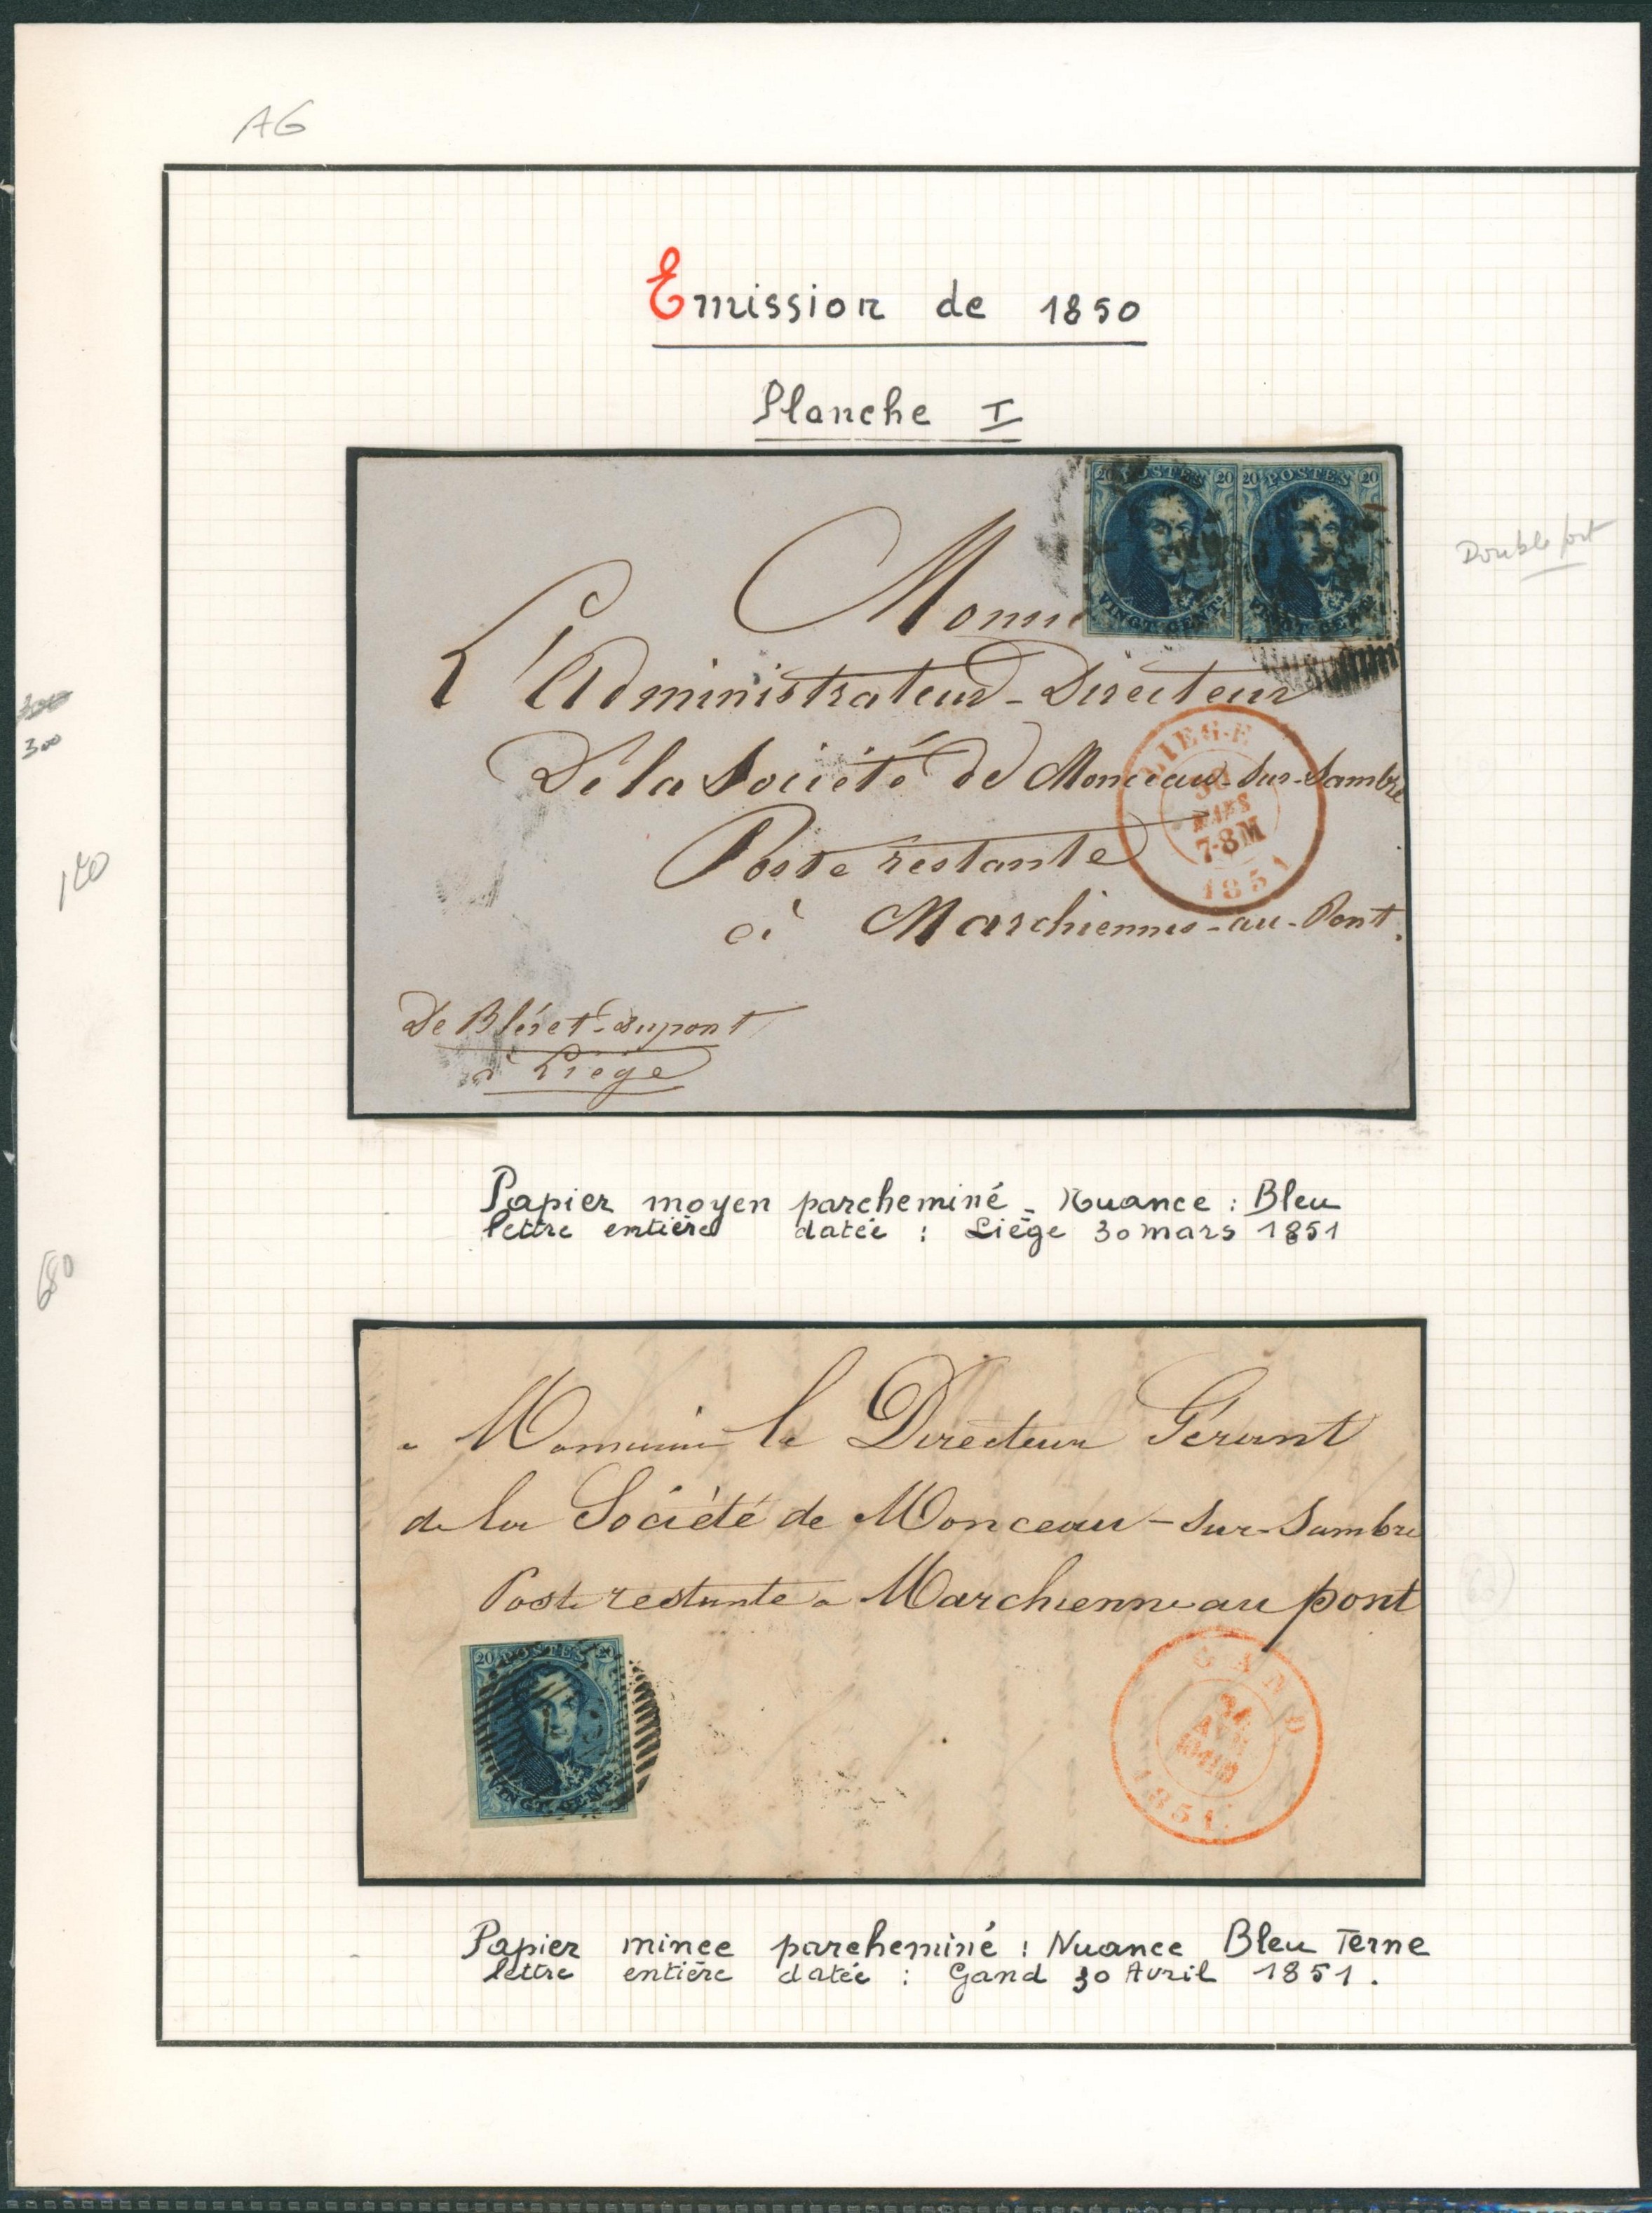 AG
Emission de 1850
Planche I
20 POSTES 20 20 POSTES 20
VINGT CENT. VINGT CENT.
Double port
L'Administrateur-Directeur
De la Société de Monceau-sur-Sambre
Poste restante
à Marchiennes-au-Pont.
LIEGE
30
MARS
7-8M
1851
De Bléret-Dupont
à Liège
300
300
140
Papier moyen parcheminé - Nuance : Bleu
lettre entière datée : Liège 30 mars 1851
680
a Monsieur le Directeur Gérant
de la Société de Monceau-sur-Sambre
Poste restante a Marchienne au pont
20 POSTES 20
VINGT CENT.
GAND
1851
Papier mince parcheminé : Nuance Bleu Terne
lettre entière datée : Gand 30 Avril 1851.